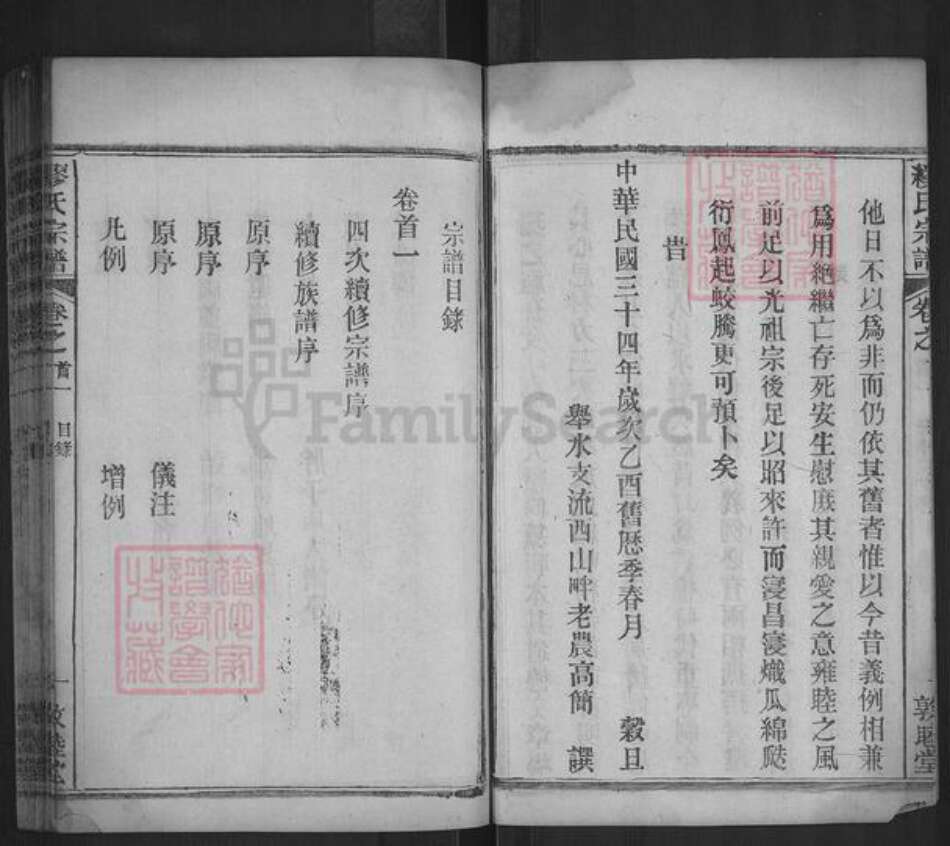 繆氏宗譜
卷之
敦睦堂
他日不以爲非而仍依其舊者惟以今昔義例相兼
爲用絶繼亡存死安生慰庶其親愛之意雍睦之風
前足以光祖宗後足以昭來許而寖昌寖熾瓜綿瓞
衍鳳起蛟騰更可預卜矣
昔
中華民國三十四年歲次乙酉舊歷季春月 穀旦
舉水支流西山畔老農高簡 譔
宗譜目錄
卷首一
四次續修宗譜序
續修族譜序
原序
原序
原序 儀注
凡例 增例
繆氏宗譜
卷之首一
目錄
一
敦睦堂
譜學會
收藏
FamilySearch